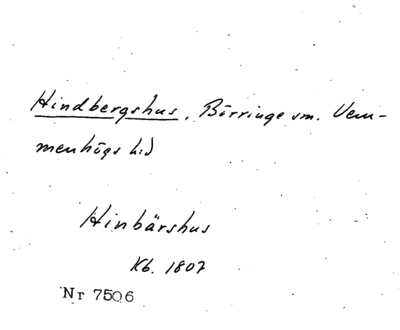 Hindbergshus, Börringe sn. Vem-
menhögs hd
Hinbärshus
Kb. 1807
Nr 7506